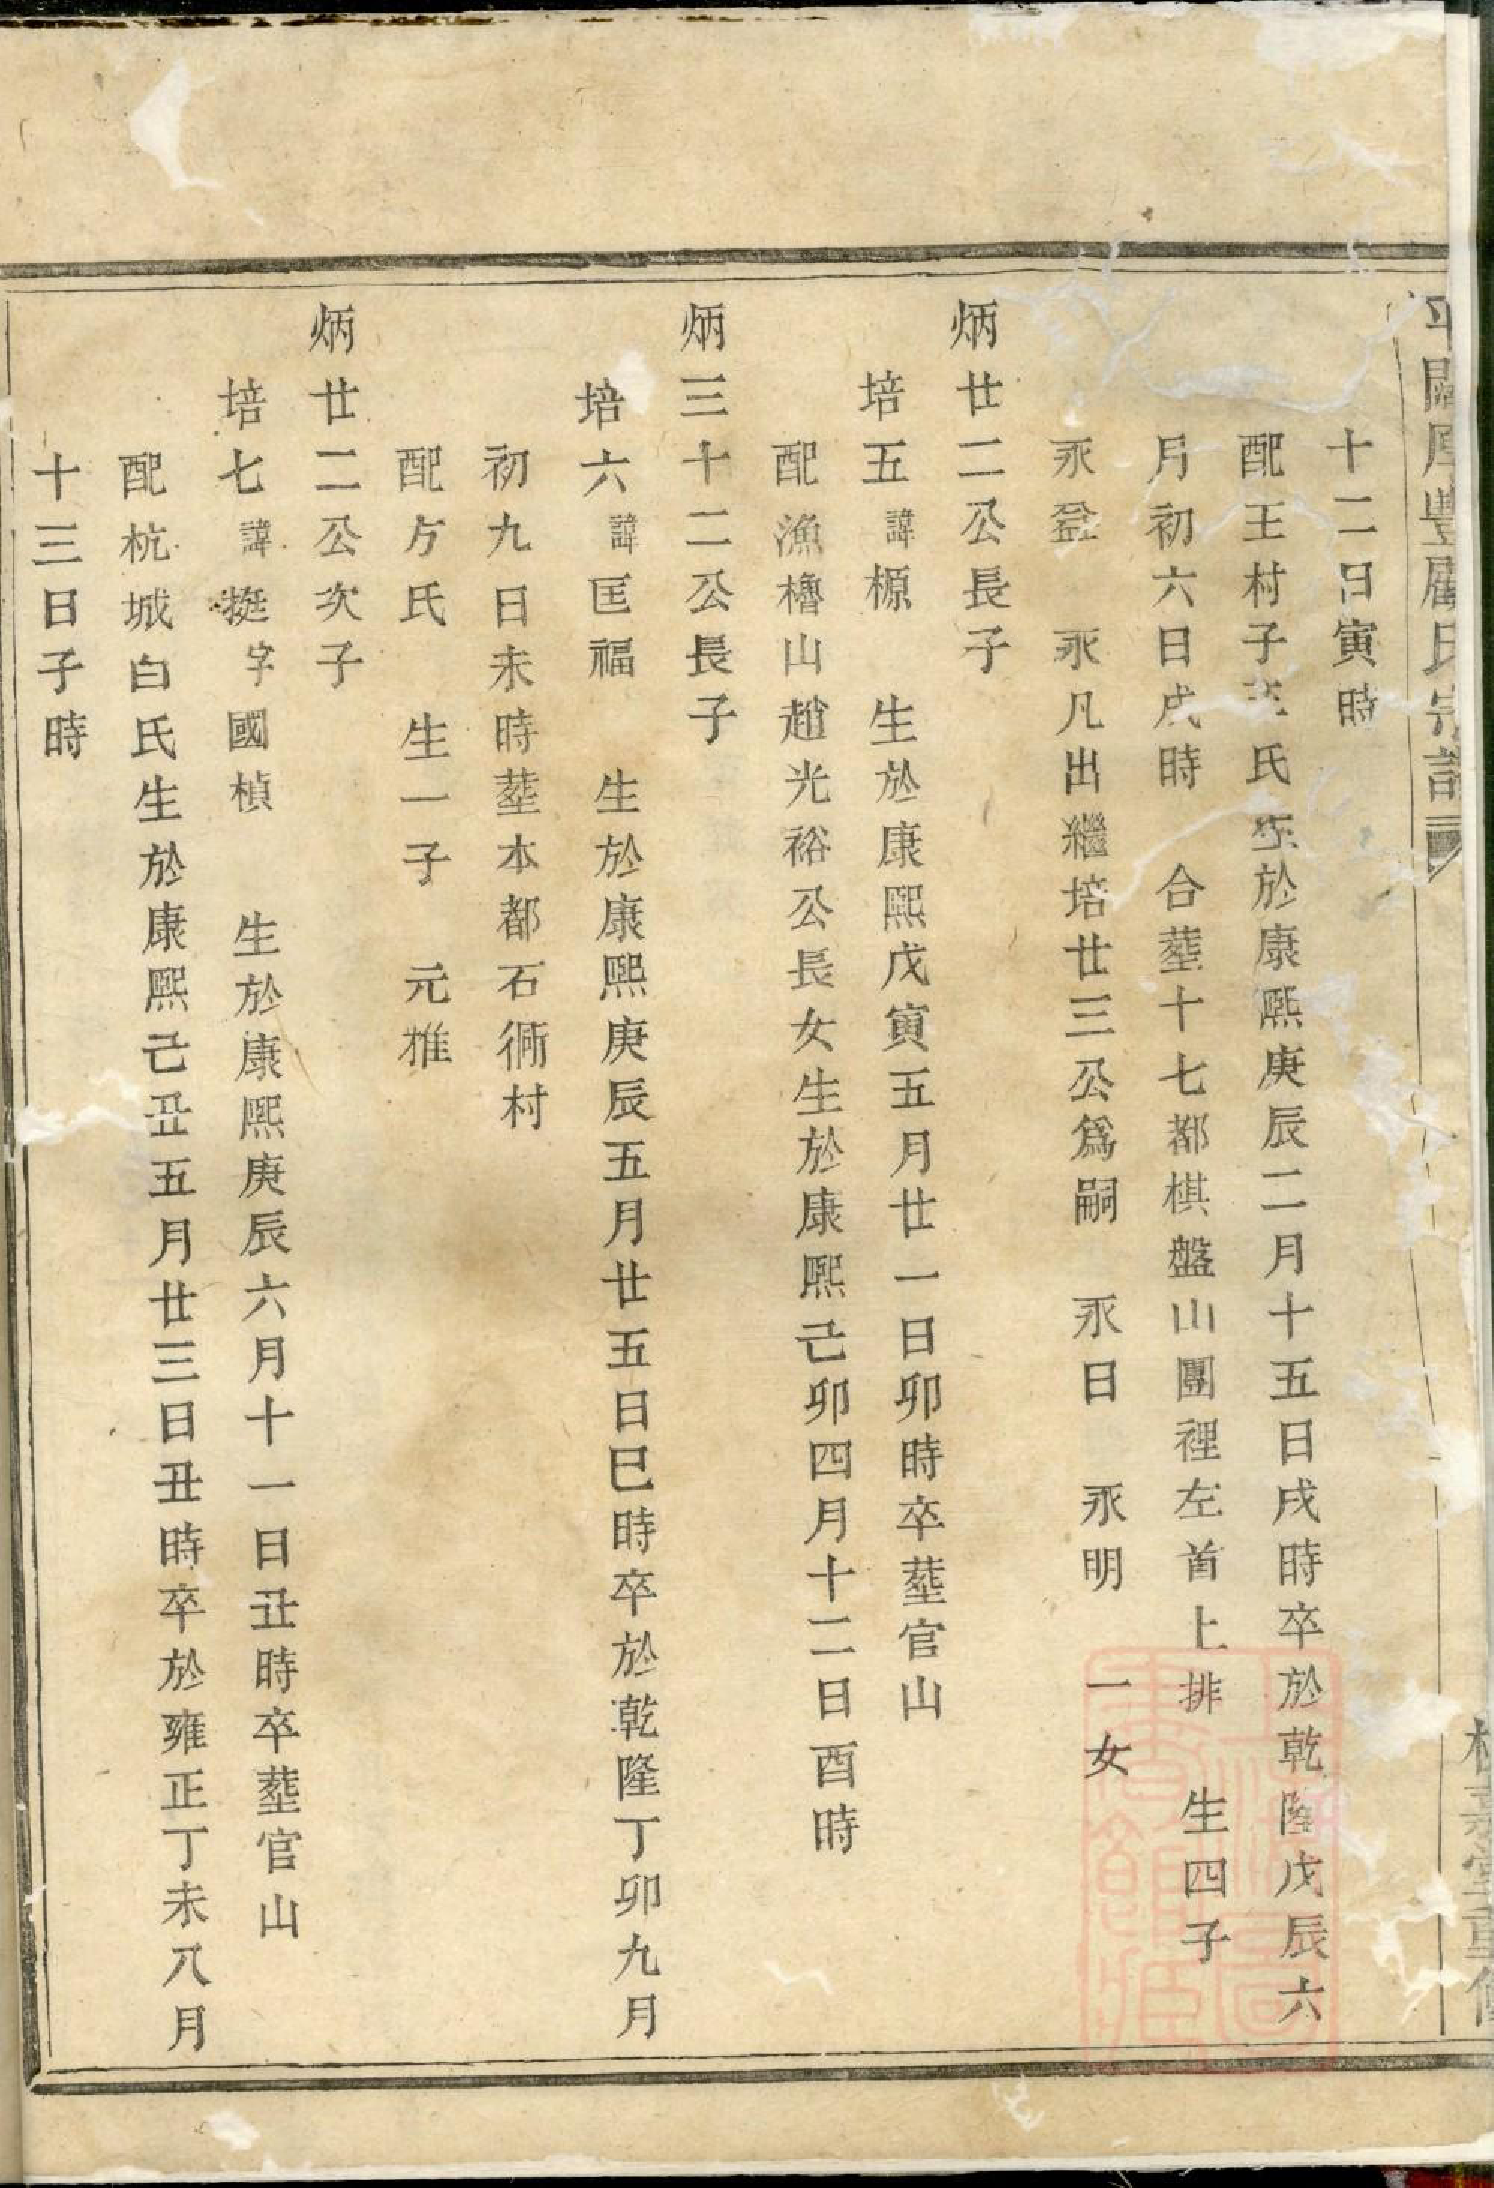 十二日寅時
配王村子王氏生於康熙庚辰二月十五日戌時卒於乾隆戊辰六
月初六日戌時 合塟十七都棋盤山團裡左首上排 生四子
永盆 永凡出繼培廿三公爲嗣 永日 永明 一女
炳廿二公長子
培五諱榞 生於康熙戊寅五月廿一日卯時卒塟官山
配漁櫓山趙光裕公長女生於康熙己卯四月十二日酉時
炳三十二公長子
培六諱匡福 生於康熙庚辰五月廿五日巳時卒於乾隆丁卯九月
初九日未時塟本都石衕村
配方氏 生一子 元雅
炳廿二公次子
培七諱挺字國楨 生於康熙庚辰六月十一日丑時卒塟官山
配杭城白氏生於康熙己丑五月廿三日丑時卒於雍正丁未八月
十三日子時